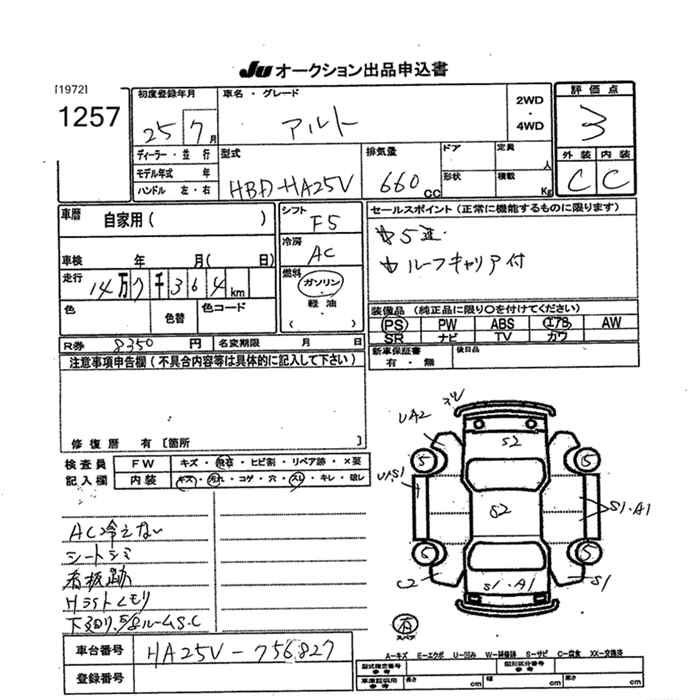 JU オークション出品申込書
[1972]
1257
初度登録年月
25 7月
車名・グレード
アルト
2WD
・
4WD
評価点
3
外装 内装
C C
ディーラー・並行
モデル年式 年
ハンドル 左・右
型式
HBD-HA25V
排気量
660 cc
ドア
形状
定員 人
積載 Kg
車歴 自家用( )
車検 年 月( 日)
走行
14万7千364km
色 色替 色コード
シフト
F5
冷房
AC
燃料
ガソリン・
軽油・
( )
セールスポイント(正常に機能するものに限ります)
5速
ルーフキャリア付
装備品(純正品に限り○を付けてください)
PS PW ABS エアB AW
SR ナビ TV カワ
新車保証書
有・無
後日品
R券 8350円 名変期限 月 日
注意事項申告欄(不具合内容等は具体的に記入して下さい)
修復歴 有[箇所 ]
検査員
記入欄
FW キズ・飛石・ヒビ割・リペア跡・X要
内装 キズ・汚れ・コゲ・穴・スレ・キレ・破レ
AC冷えない
シートシミ
看板跡
HライトくもりE
下廻り、S/Sルーム S.C
車台番号 HA25V-756827
登録番号
UA2
S2
5
5
U/S1
S2
S1・A1
5
5
C2
S1・A1
S1
有
スペア
A-キズ E-エクボ U-凹み W-補修跡 S-サビ C-腐食 XX-交換済
型式指定番号
参考
類別区分番号
参考
車庫証明用
参考
長さ cm
幅 cm
高さ cm